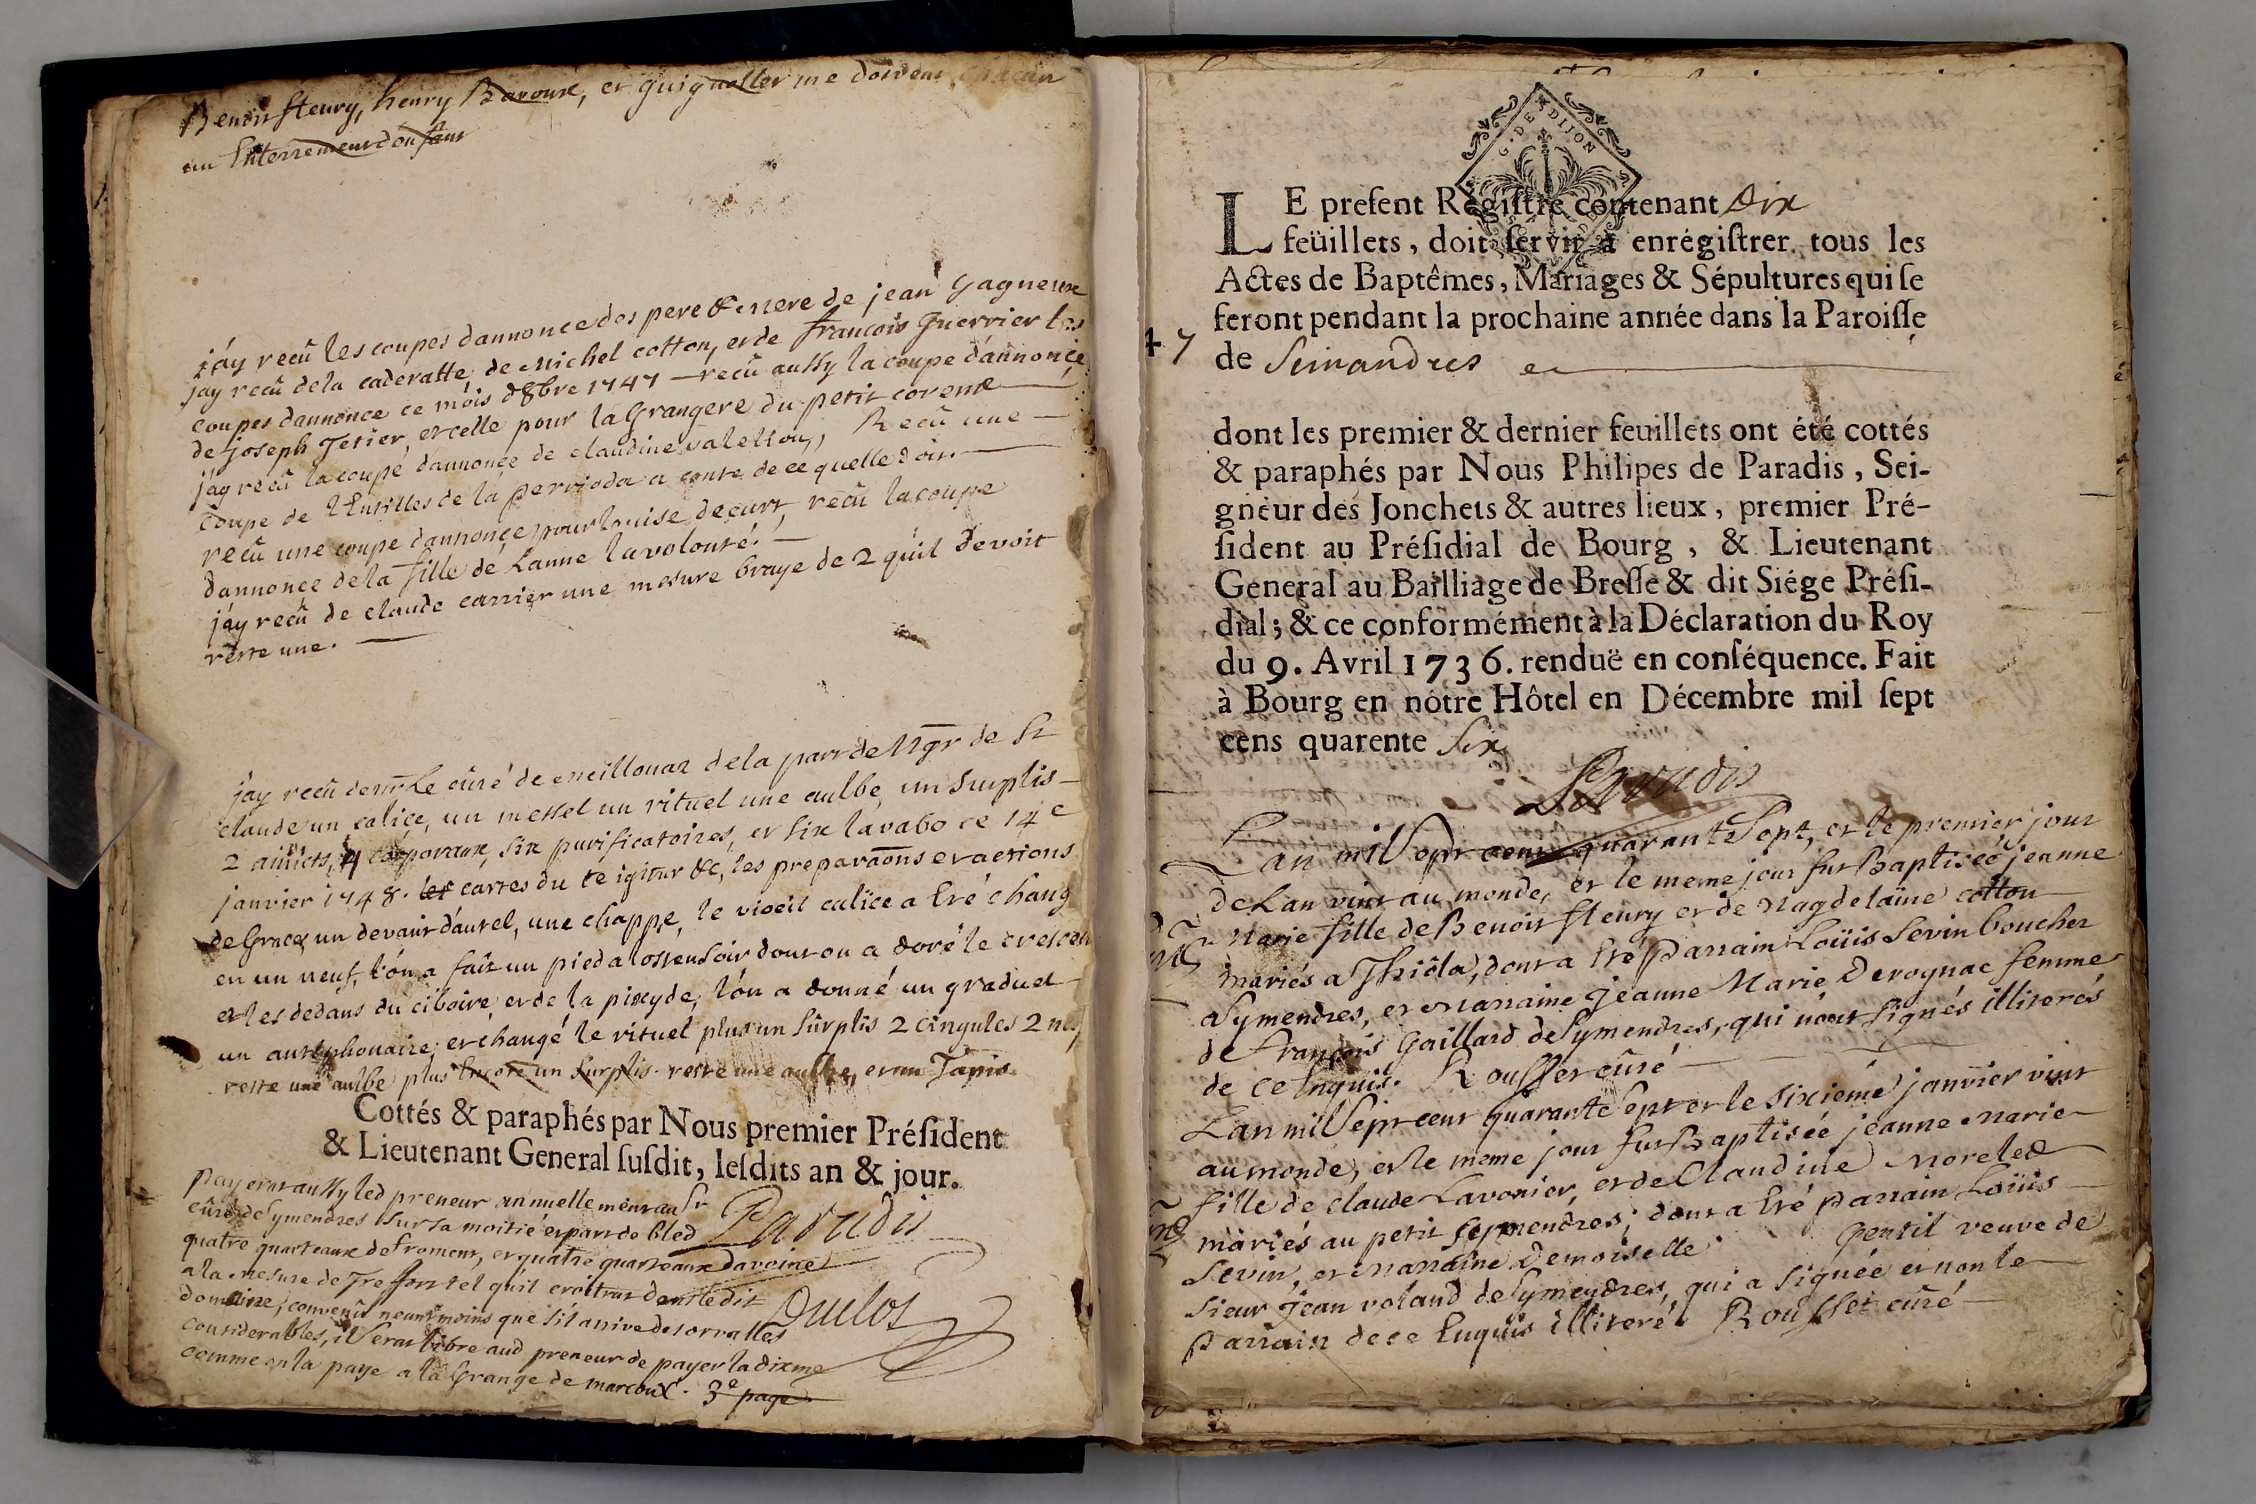 Benoit fleury, henry Baroux, et guignollet me doivent chacun
un Enterrement d'enfant
j'ay recû les coupes dannonce des pere & mere de jean Gagneux
jay recû de la caderatte de Michel cotton, et de francois Guerrier les
coupes dannonce ce mois d8bre 1747 — recû aussy la coupe d'annonce
de joseph Jetier, et celle pour la Grangere du petit corent
jay recû la coupe dannonce de claudine valetton, Recû une
coupe de lentilles de la pervioda a conte de ce quelle doit
recû une coupe dannonce pour louise decurt, recû la coupe
dannonce de la fille de Lanne lavolonté.
jáy recû de claude carrier une mesure braye de 2 qu'il devoit
reste une.
jay recû de mr Le cûré de meillonaz de la part de Mgr de St
claude un calice, un messel un rituel une aulbe, un surplis
2 amicts, 4 corporaux, six purificatoires, et six lavabo ce 14e
janvier 1748. les cartes du te igitur &c, les préparaõns et actions
de Graces un devant d'autel, une chappe, le vioeil calice a Eté chang
en un neuf, l'on a fait un pied a lostensoir dont on a doré le croissan
et les dedans du ciboire, et de la pixyde, l'ón a donné un graduel
un antiphonaire, et changé le rituel plus un surplis 2 cingules 2
reste une aulbe plus Encore un surplis. reste une aulbe, et un Tapis
Cottés & paraphés par Nous premier Président
& Lieutenant General susdit, lesdits an & jour.
payerat aussy led preneur annuellement au Sr
cûré de Symendres sur sa moitié et part de bled
Paradis
quatre quarteaux de froment, et quatre quarteaux d'avoine
a la mesure de Treffort tel quil croitrat dans ledit
domaine, convenu neantmoins que s'il arrive des orvalles
Duclos
considerables, il serat libre aud preneur de payer la dixme
comme on la paye a la Grange de marcoux. 3e page
G. DE DIJON
LE present Régistre contenant Dix
feüillets, doit servir à enrégistrer tous les
Actes de Baptêmes, Mariages & Sépultures qui se
feront pendant la prochaine année dans la Paroisse
47
de Simandres
dont les premier & dernier feuillets ont été cottés
& paraphés par Nous Philipes de Paradis, Sei-
gneur des Jonchets & autres lieux, premier Pré-
sident au Présidial de Bourg, & Lieutenant
General au Bailliage de Bresse & dit Siége Prési-
dial; & ce conformément à la Déclaration du Roy
du 9. Avril 1736. renduë en conséquence. Fait
à Bourg en nôtre Hôtel en Décembre mil sept
cens quarente Six
Paradis
Lan mil sept cent quarante sept, et le premier jour
de Lan vint au monde, et le meme jour fut Baptiséé jeanne
Marie fille de Benoit fleury et de Magdelaine cotton
mariés a Thiôla, dont a Eté parrain Loüis Sevin boucher
a Symendres, et Marraine Jeanne Marie Derognac femme
de François Gaillard de Symendres, qui n'ont signés illiterés
de ce Enquis. Rousset cûré
Lan mil sept cent quarante sept et le sixieme janvier vint
au monde, et le meme jour fut Baptiséé jeanne Marie
fille de claude Lavorier, et de Claudine Morelet
mariés au petit symendres; dont a Eté parrain Loüis
Sevin, et Marraine Demoiselle Gentil veuve de
sieur Jean voland de Symendres, qui a signéé et non le
parrain de ce Enquis illiteré. Rousset cûré